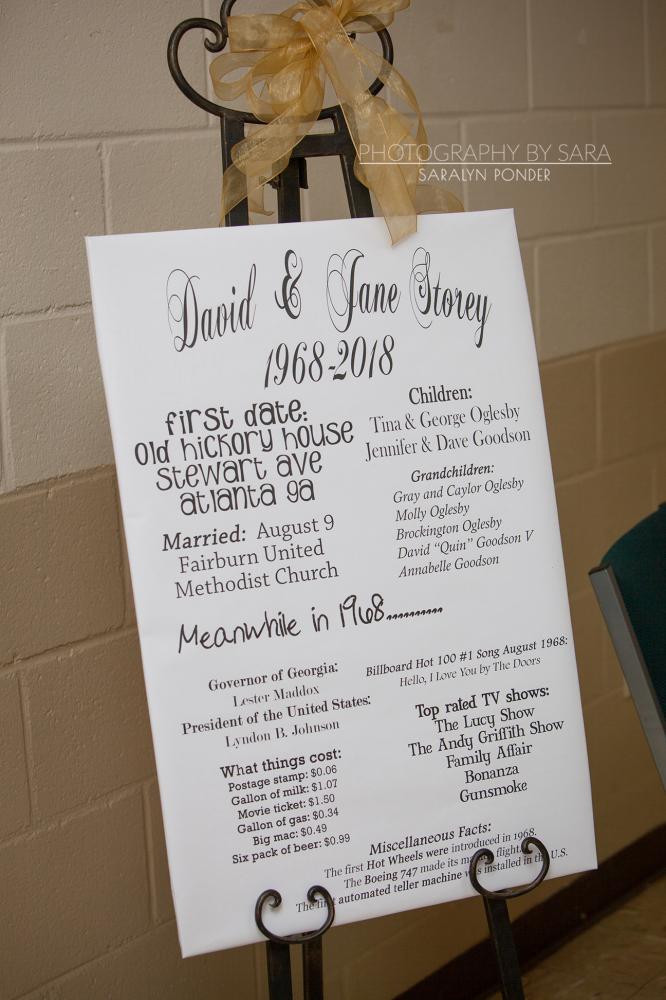 PHOTOGRAPHY BY SARA
SARALYN PONDER
David & Jane Storey
1968-2018
first date:
Old hickory house
stewart ave
atlanta ga
Married: August 9
Fairburn United
Methodist Church
Children:
Tina & George Oglesby
Jennifer & Dave Goodson
Grandchildren:
Gray and Caylor Oglesby
Molly Oglesby
Brockington Oglesby
David "Quin" Goodson V
Annabelle Goodson
Meanwhile in 1968..........
Governor of Georgia:
Lester Maddox
President of the United States:
Lyndon B. Johnson
What things cost:
Postage stamp: $0.06
Gallon of milk: $1.07
Movie ticket: $1.50
Gallon of gas: $0.34
Big mac: $0.49
Six pack of beer: $0.99
Billboard Hot 100 #1 Song August 1968:
Hello, I Love You by The Doors
Top rated TV shows:
The Lucy Show
The Andy Griffith Show
Family Affair
Bonanza
Gunsmoke
Miscellaneous Facts:
The first Hot Wheels were introduced in 1968.
The Boeing 747 made its flight
The first automated teller machine was installed in the U.S.